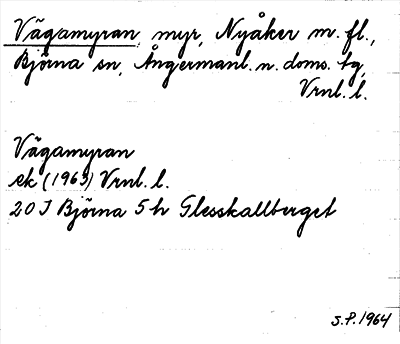 Vägamyran myr, Nyåker m. fl.,
Björna sn, Ångermanl. n. doms. tg,
Vrnl. l.
Vägamyran
ek (1963) Vrnl. l.
20 J Björna 5 h Glesskallberget
S.P. 1964